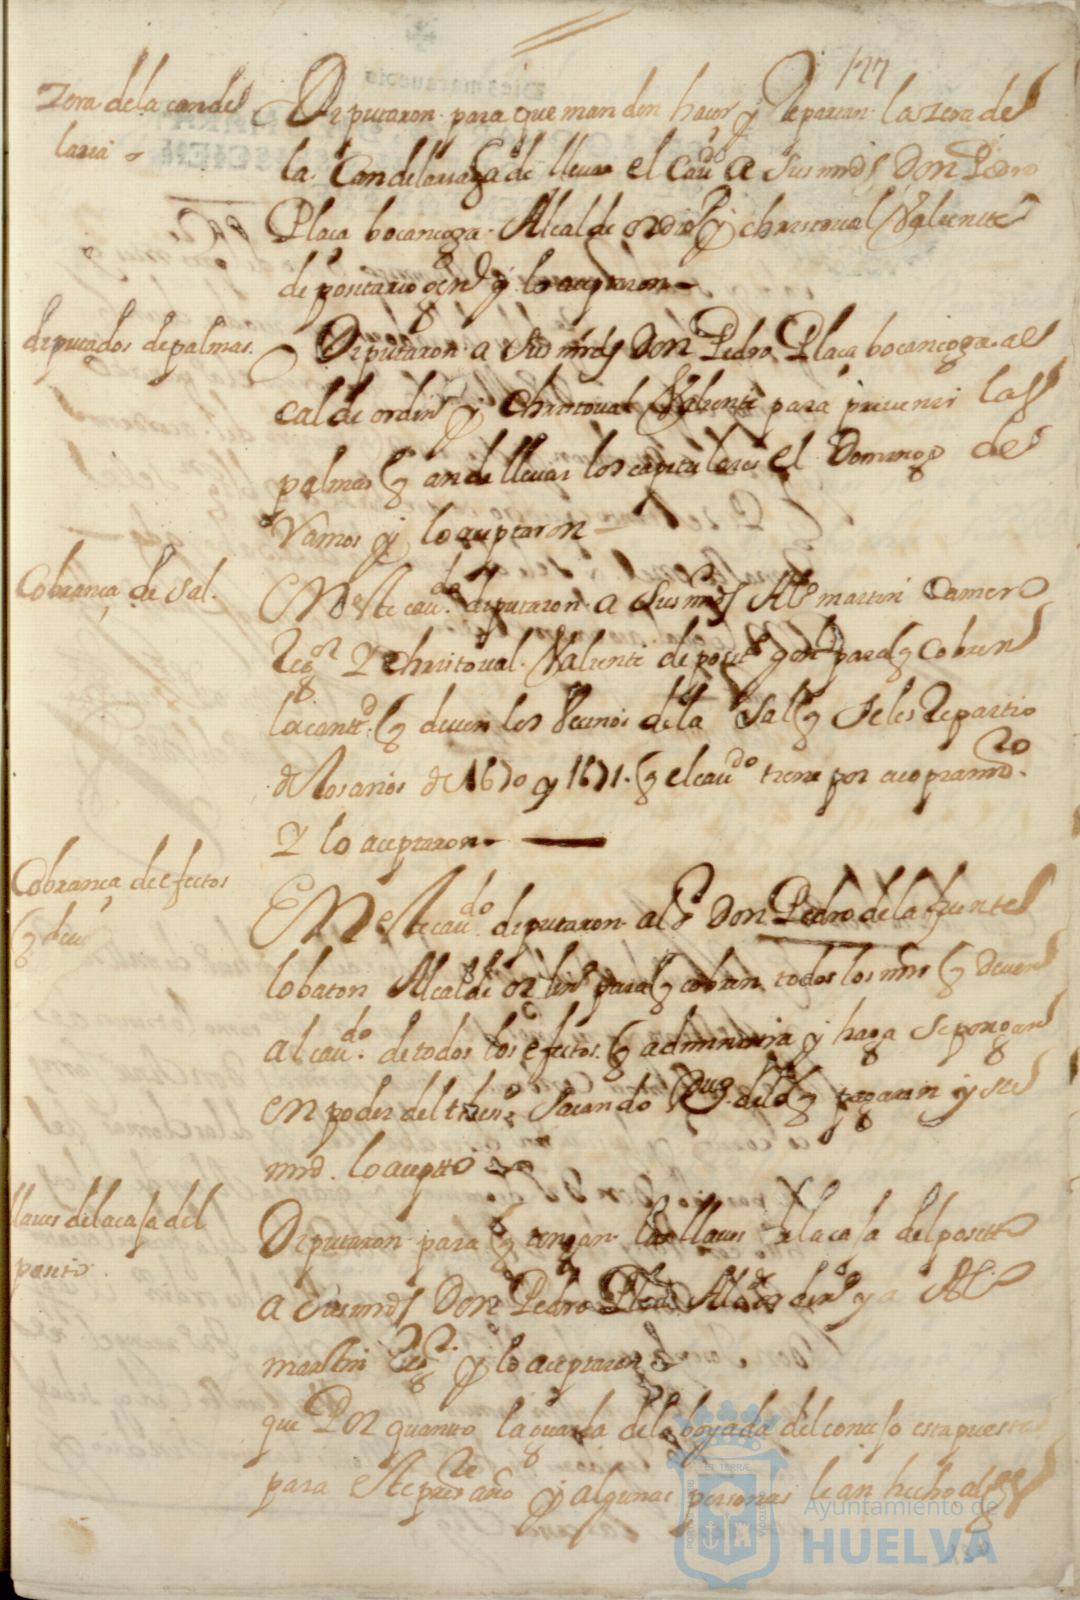 177
Zera de la cande
laria
Diputaron para que manden hacer y Repartan la zera de
la Candelaria q a de llevar el Cauº a sus mrds Don Pedro
Plaça bocanegra Alcalde ordiº y christoual Valiente
depositario genl y lo aceptaron
diputados de palmas.
Diputaron a sus mrds Don Pedro Plaça bocanegra al
calde ordinº y Christoual Valiente para preuenir las
palmas q an de lleuar los capitulares el Domingo de
Ramos y lo aceptaron
Cobrança de sal.
En este caudo diputaron a sus mrds Alº martin Camero
Regor Y Christoual Valiente deposito genl para q cobren
la cantd q deuen los Vecinos de la Sal q se les Repartio
de los años de 1670 y 1671. q el caudo tiene por
Y lo aceptaron
Cobrança de efectos
q deu
En este caudo diputaron al Sr Don Pedro de la fuente
lobaton Alcalde or dinº para q cobren todos los mrs q deuen
al caudo. de todos los efectos q administra y haga se pongan
en poder del sacando q pagaran y su
mrd. lo acepto
llaues de la casa del
posito
Diputaron para q tengan las llaues de la casa del posito
a sus mrds Don Pedro Plaça Alcalde ordinº y a Alº
martin Regor y lo aceptaron
que Por quanto la guarda de la boyada del concejo esta puesta
para este presTe año y algunas personas le an hecho
Ayuntamiento de
HUELVA